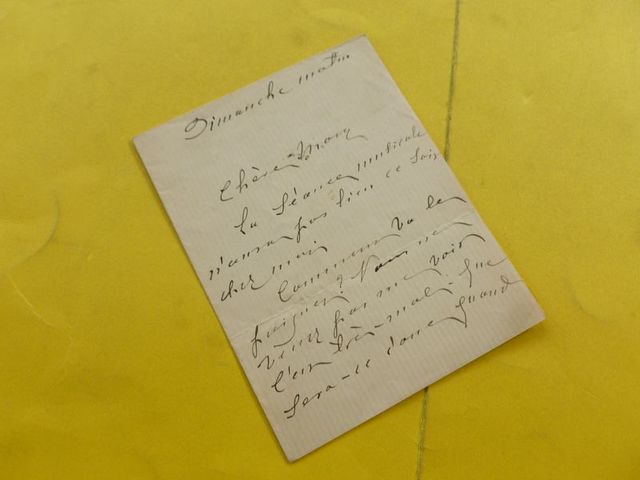 Dimanche matin
Chère Mary
La séance musicale
n'aura pas lieu ce soir
chez moi
Comment va le
poignet? Vous ne
venez pas me voir
c'est très-mal. Que
sera-ce donc quand